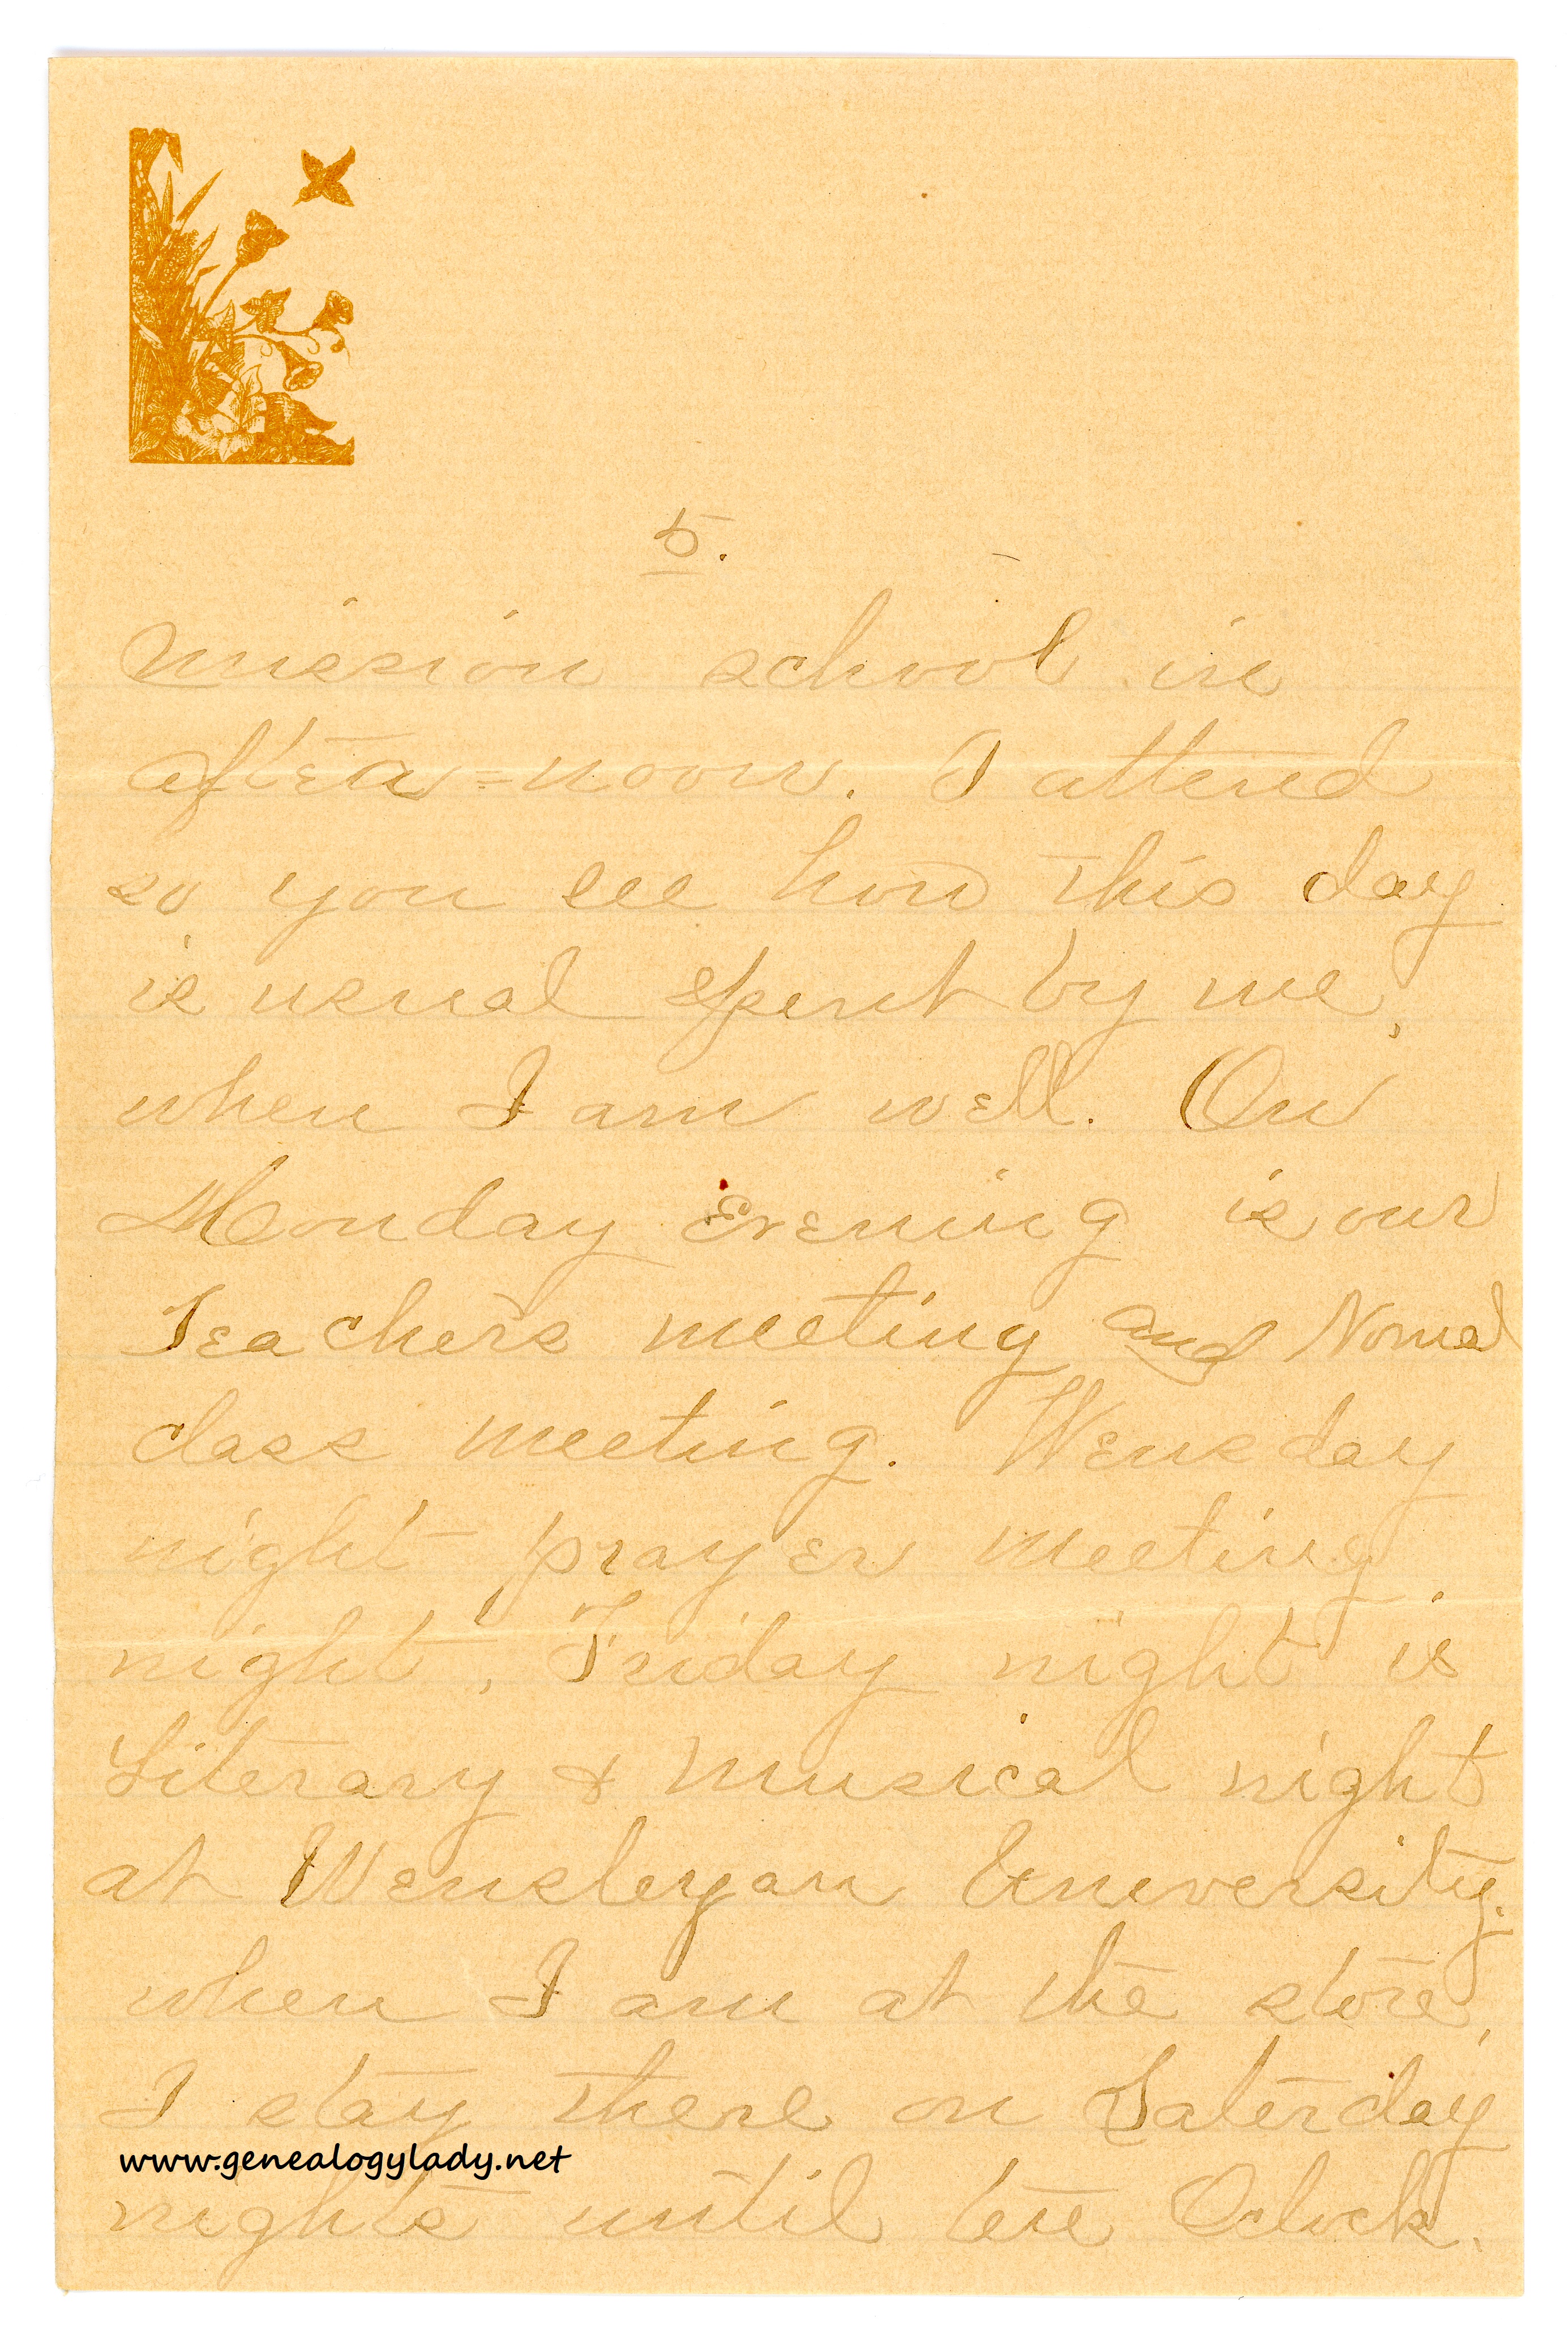 5.
mission school in
after=noon. I attend
so you see how this day
is usual spent by me,
when I am well. On
Monday Evening is our
Teachers meeting and Normal
class meeting. Wensday
night prayer meeting
night, Friday night is
Literary & Musical night
at Wensleyan University.
when I am at the store,
I stay there on Saterday
www.genealogylady.net
nights until ten Oclock.